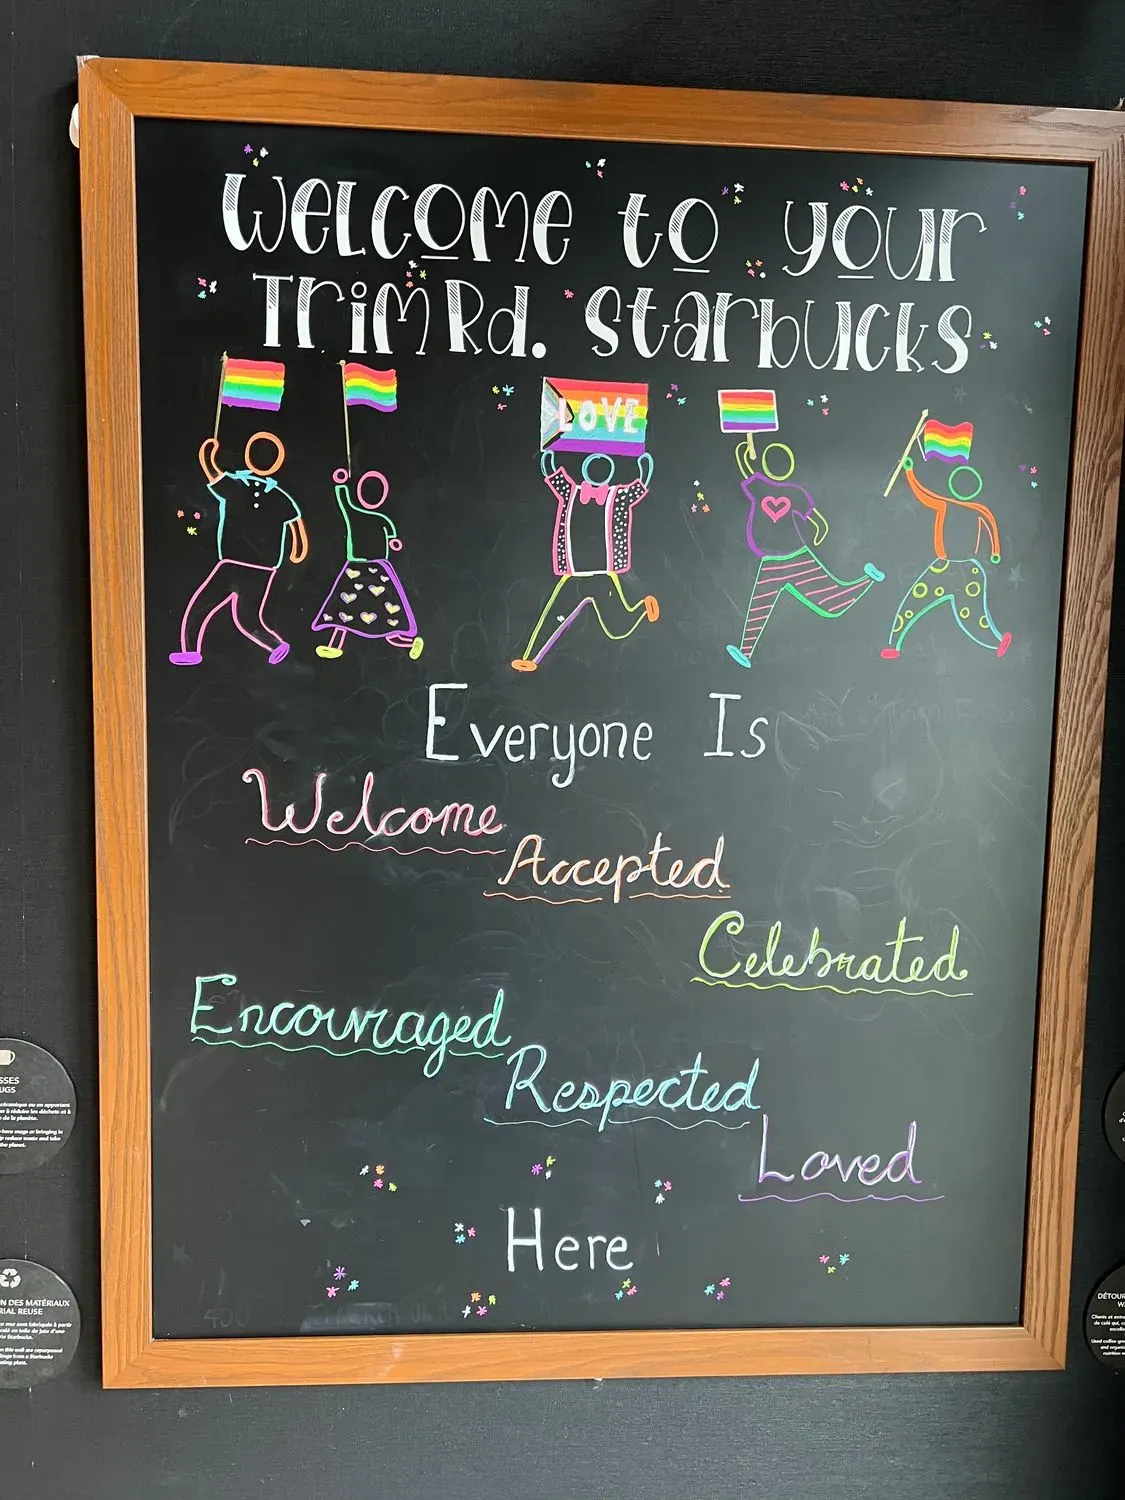 Welcome to your
Trim Rd. Starbucks
LOVE
Everyone Is
Welcome
Accepted
Celebrated
Encouraged
Respected
Loved
Here
SSES
UGS
N DES MATÉRIAUX
RIAL REUSE
DÉTOUR
W